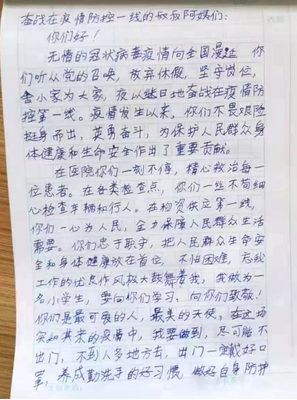 奋战在疫情防控一线的叔叔阿姨们:
你们好!
无情的冠状病毒疫情向全国漫延,你
们听从党的召唤,放弃休假,坚守岗位,
舍小家为大家,夜以继日地奋战在疫情防
控第一线。疫情发生以来,你们不畏艰险
挺身而出,英勇奋斗,为保护人民群众身
体健康和生命安全作出了重要贡献。
在医院你们一刻不停,精心救治每一
位患者。在各类检查点,你们一丝不苟细
心检查车辆和行人。在物资供应第一线,
你们一心为人民,全力保障人民群众生活
需要。你们忠于职守,把人民群众生命安
全和身体健康放在首位,不怕困难,忘我
工作的优良作风极大鼓舞着我,我做为一
名小学生,要向你们学习,向你们致敬!
你们是最可爱的人,最美的天使。在这场
突如其来的疫情中,我要做到,尽可能不
出门,不到人多地方去,出门一定戴好口
罩,养成勤洗手的好习惯,做好自身防护